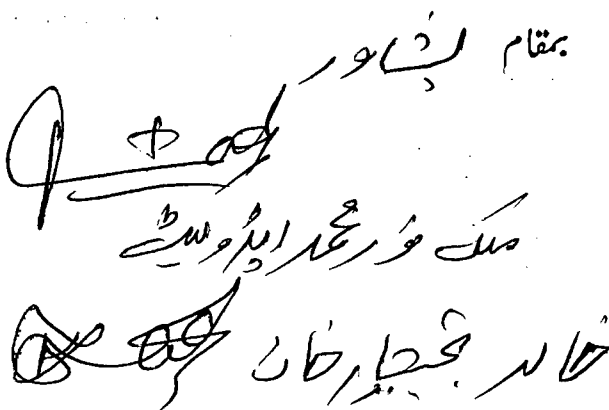 بمقام پشاور
ملک نور محمد ایڈووکیٹ
خالد بختیار خان